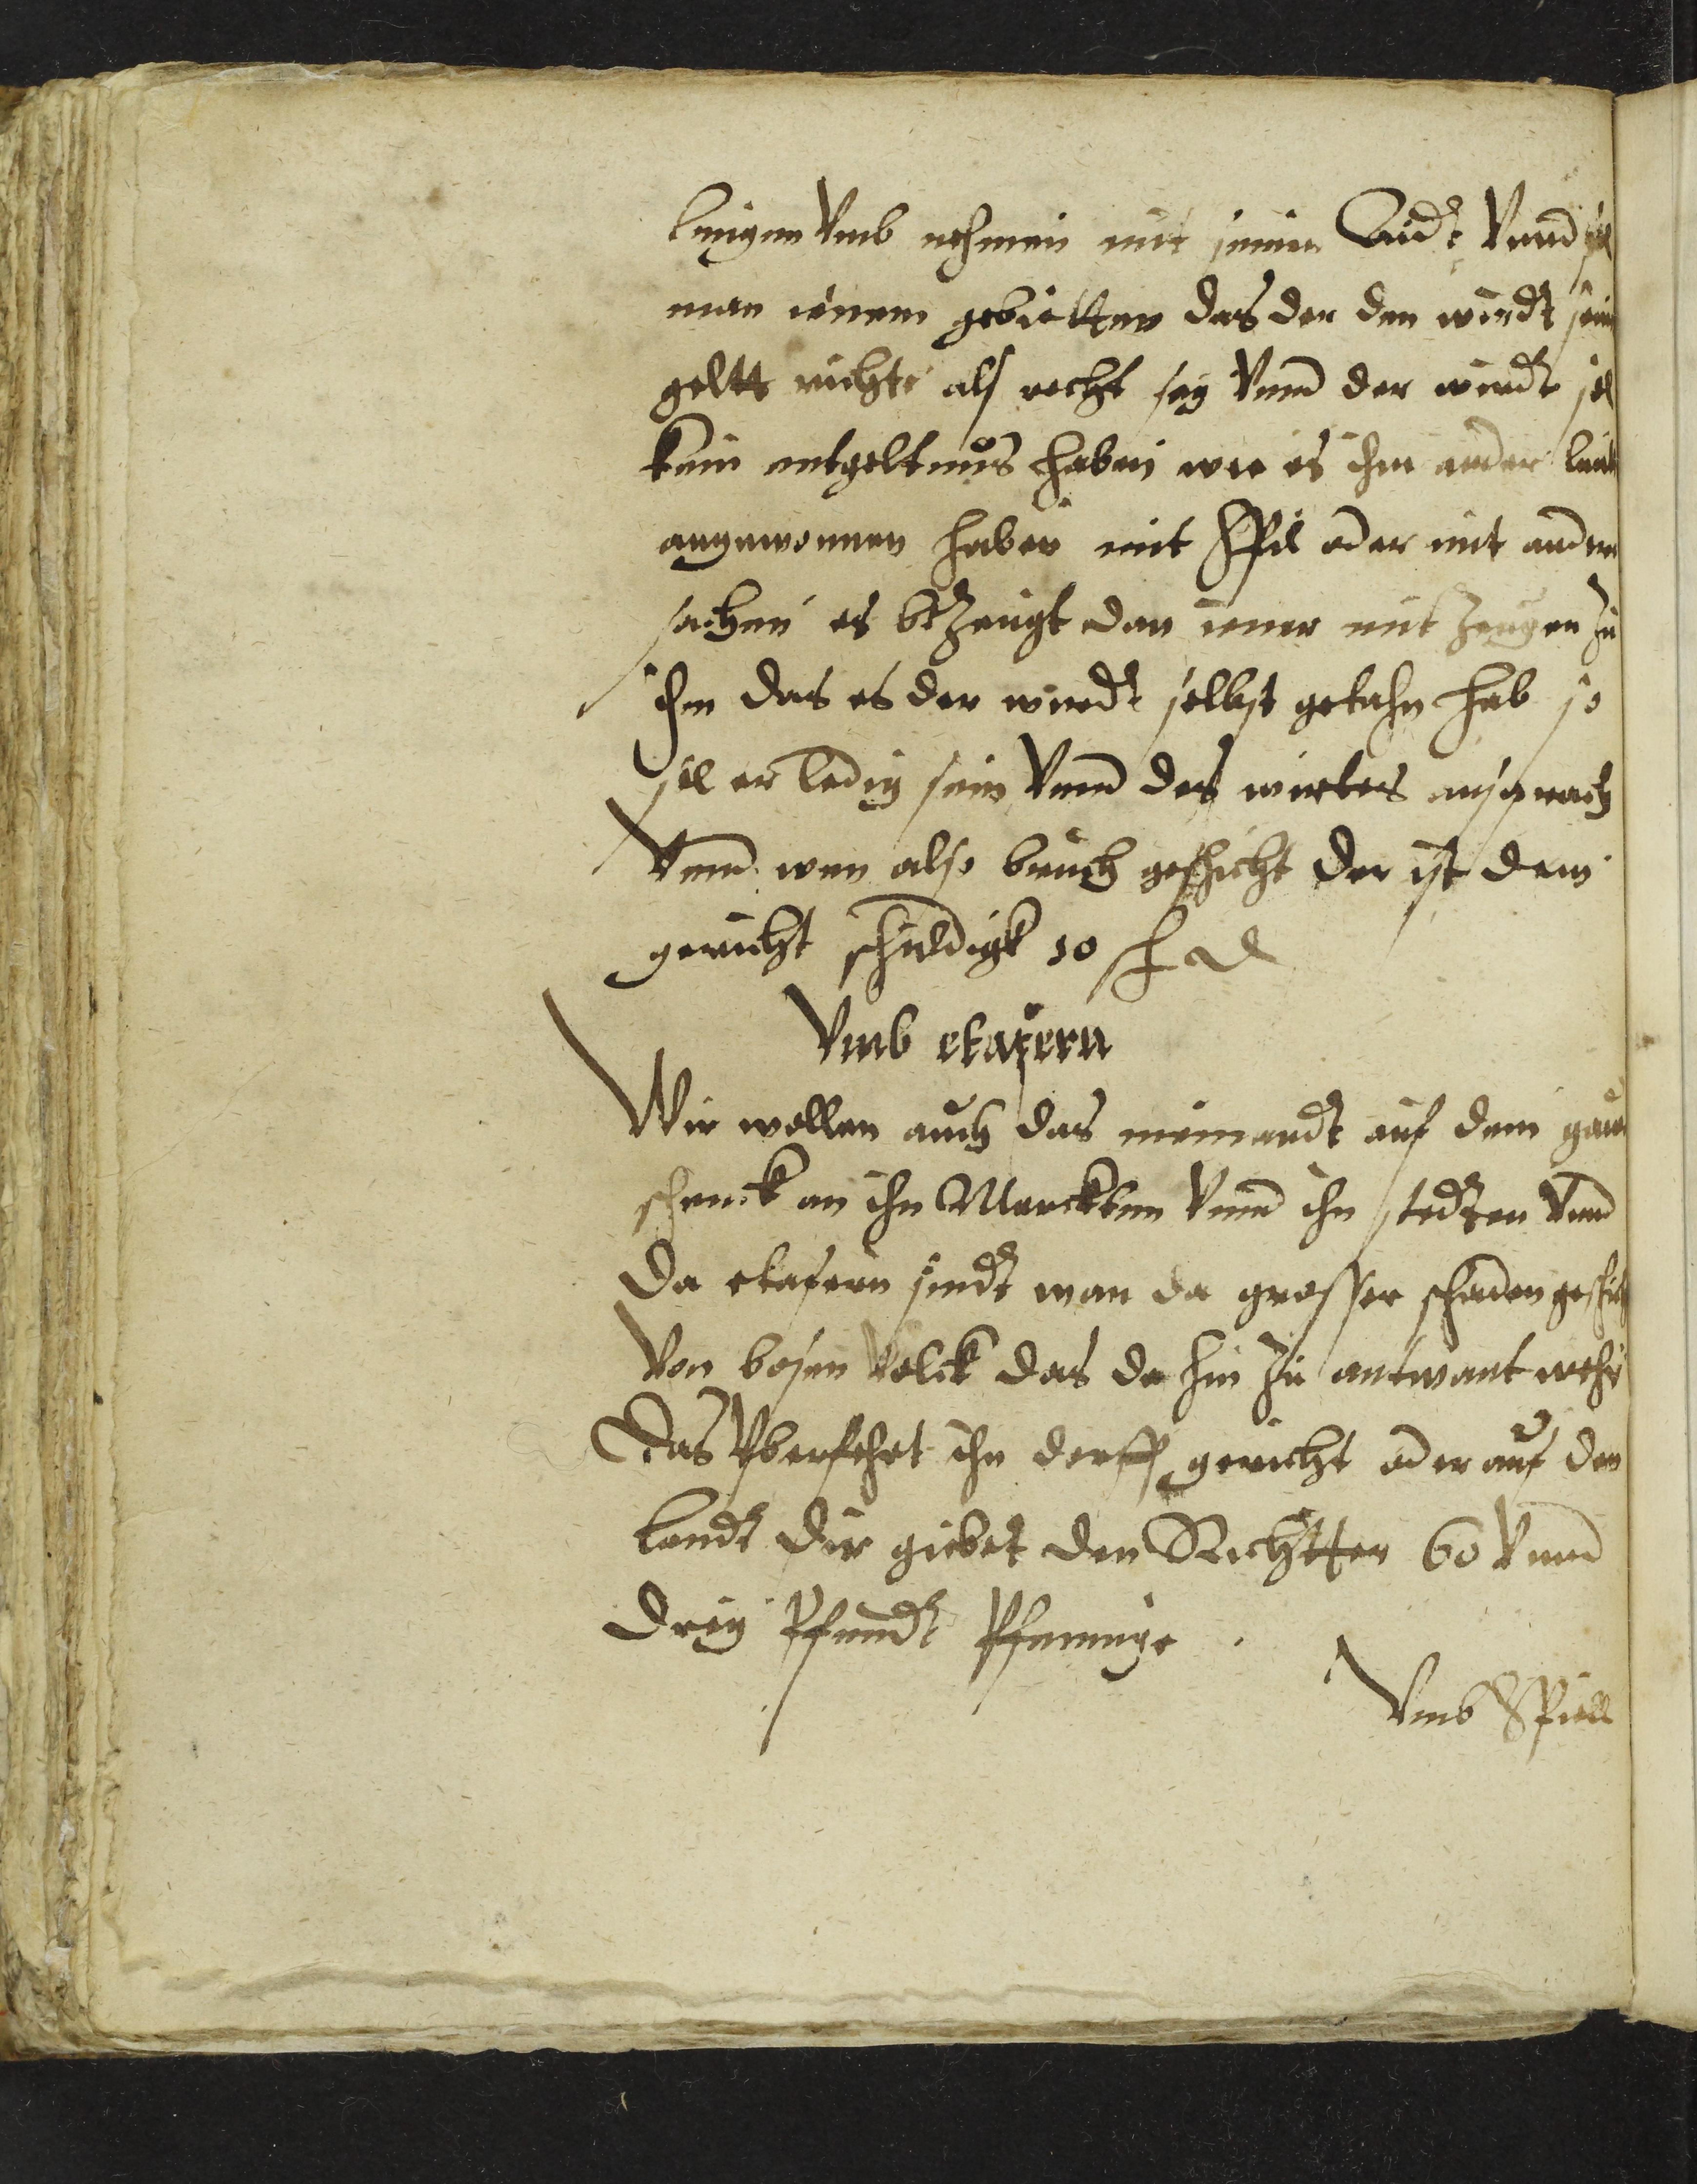 leugnen Vmb nehmen mit seinem Eidt Vnnd sol
man ienem gebietten das der dem wirdt sein
geltt richte als recht sey Vnnd der wirdt sol
kein entgeltnus haben wie es ihm ander leut
angewonnen haben mit Spil oder mit andern
sachen es bezeugt dan iener mit zeugen zu
ihm das es der wirdt selbst getahn hab so
sol er ledig sein Vnnd des wirtes ansprach
Vnnd wen also bruch geschicht der ist dem
gericht schuldigk 10 ß d
Vmb etafern
Wir wollen auch das niemandt auf dem gau
schenck an ihn Marckten Vnnd ihn stedten Vnnd
Da etafern sindt wan da grosser schaden geschich
Von bosen Volck das da hin zu antwant
Das Vberfehrt ihn dorff gericht oder auf dem
landt dir giebet dem Richtter 60 Vnnd
Drey Pfundt Pfennige
Vmb Spiell